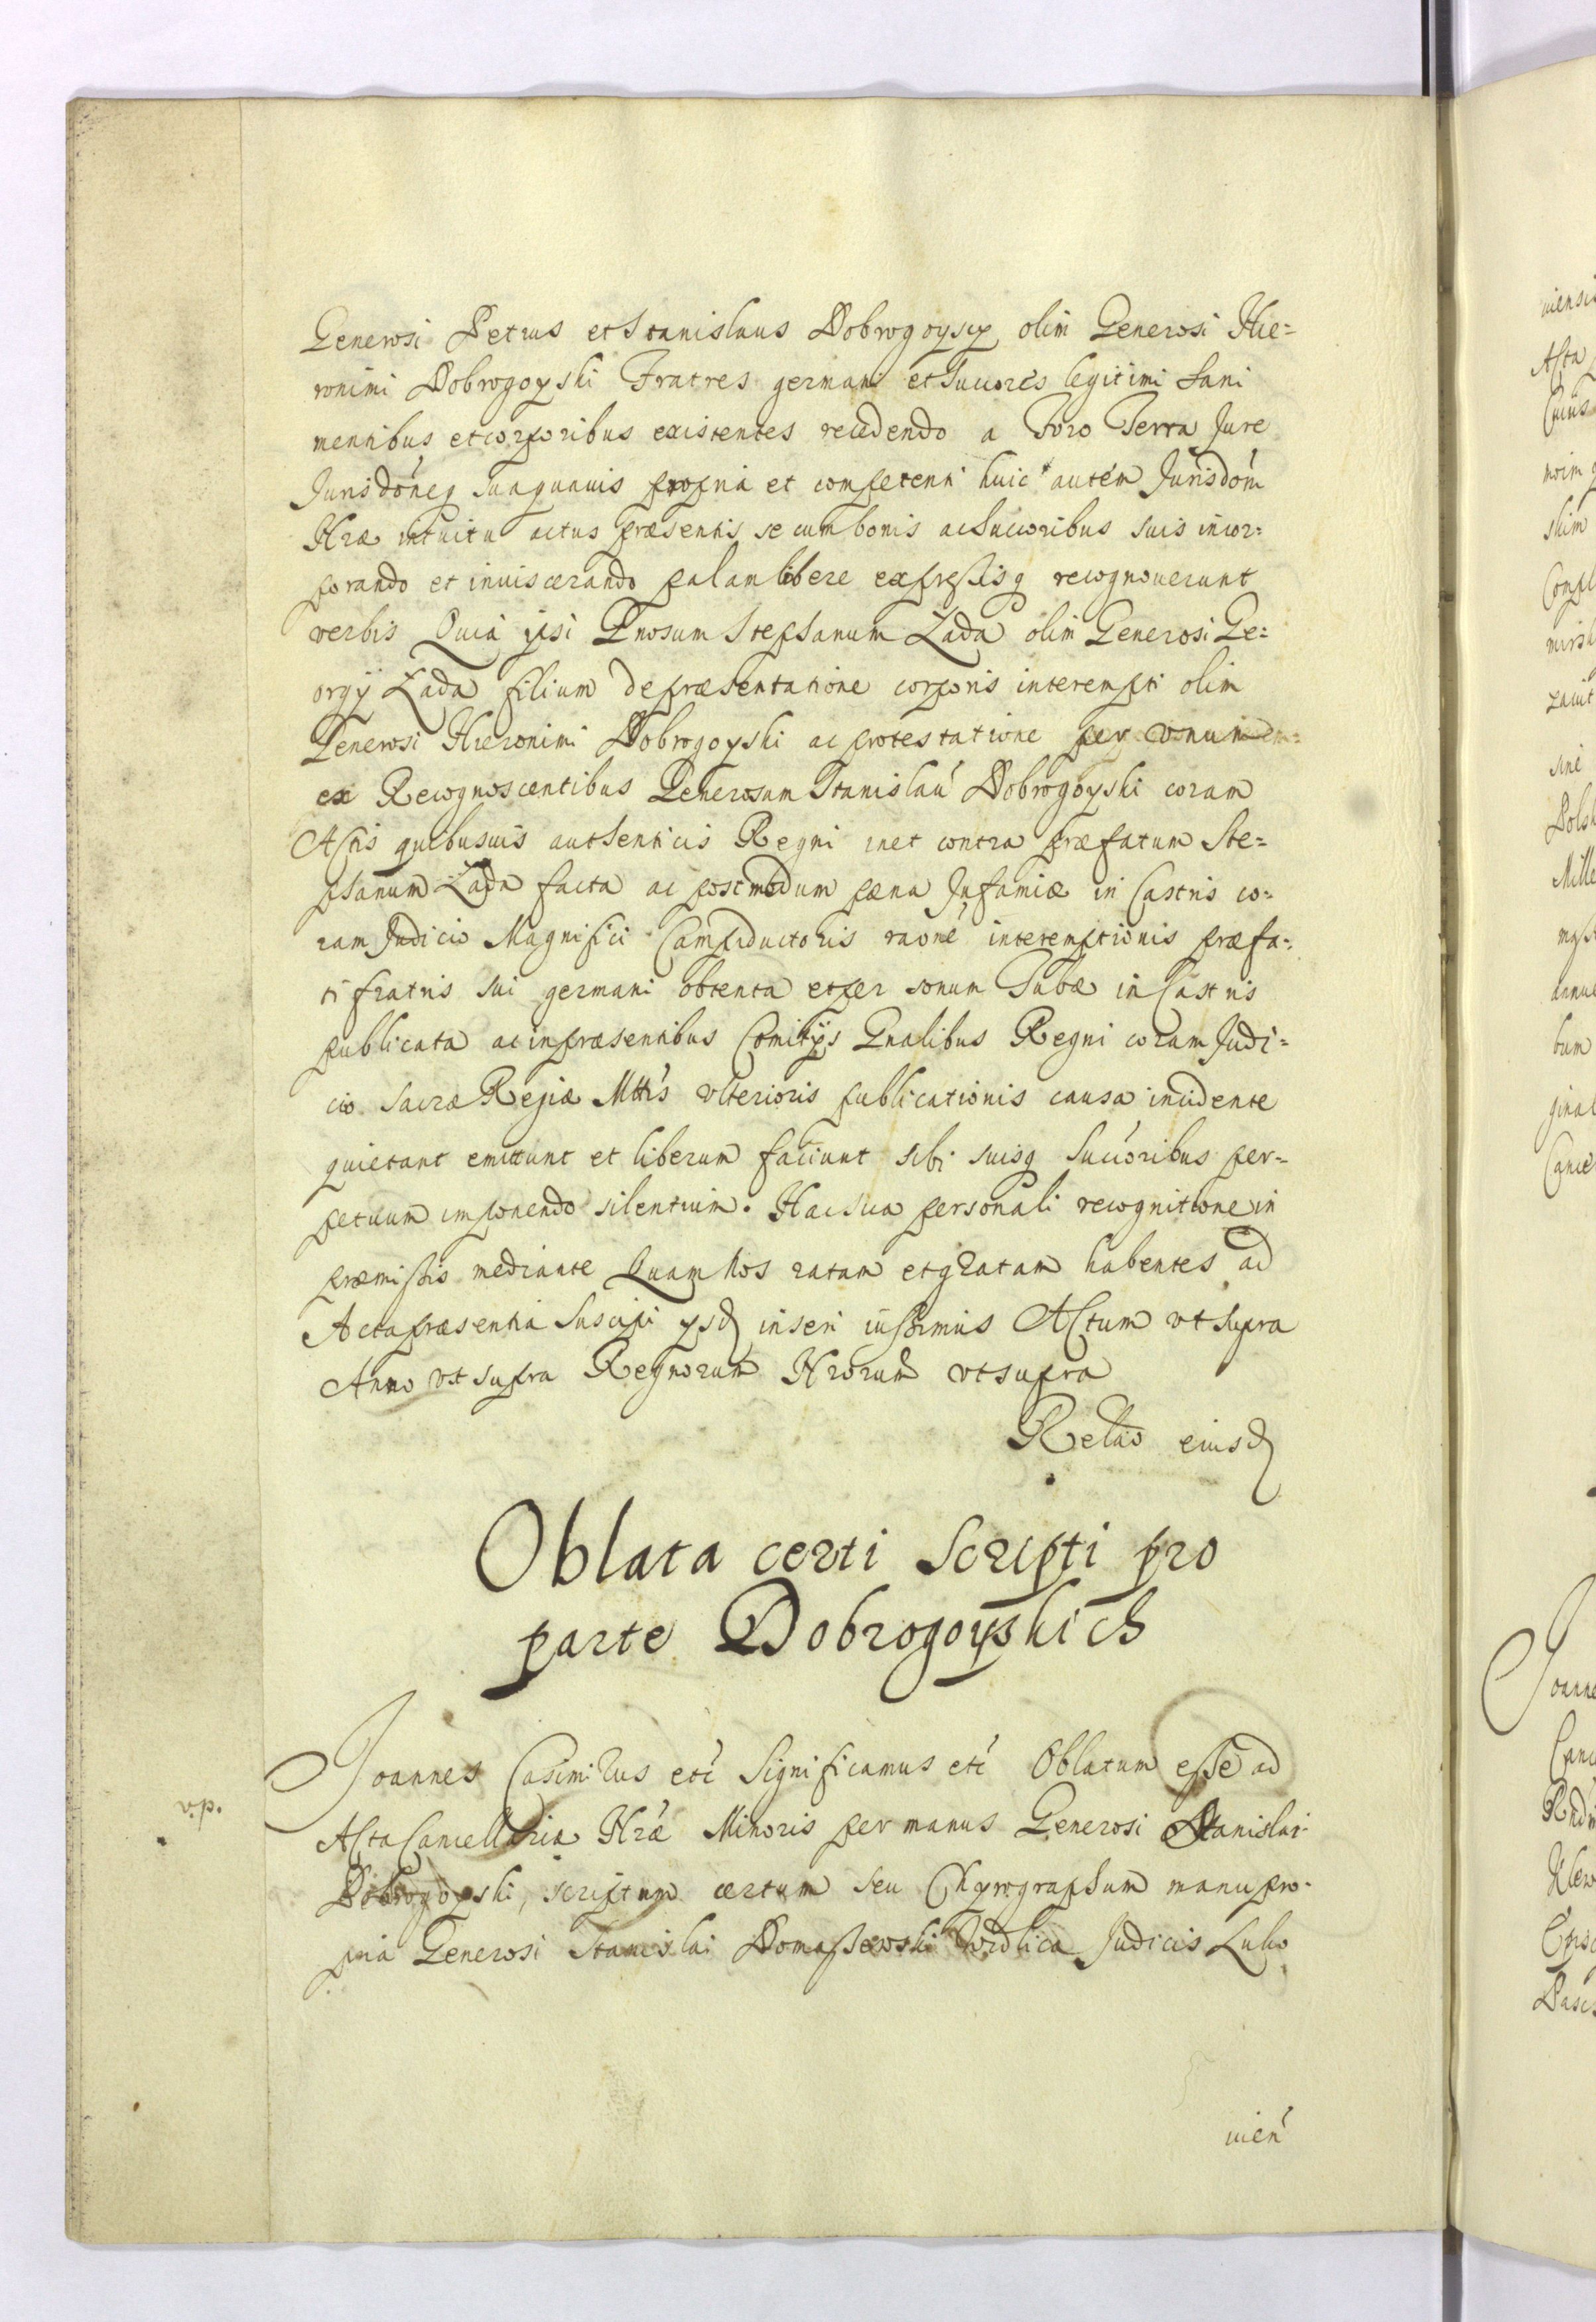 Generosi Petrus et Stanislaus Dobrogoyscy olim Generosi Hie=
ronimi Dobrogoyski Fratres germani et Succores legitimi sani
mentibus et corporibus existentes recedendo a Foro Terra Jure
Jurisdóneq suaquavis propria et competenti huic autém Jurisdóni
Hræ intuitu actus præsentis se cum bonis ac Succoribus suis incor=
porando et inviscerando palam libere expressisq recognoverunt
verbis Quia ipsi Gnosum Stephanum Zada olim Generosi Ge=
orgÿ Zada filium de præsentatione corporis interempti olim
Generosi Hieronimi Dobrogoyski ac protestatione per vnum
ex Recognoscentibus Generosum Stanislaú Dobrogoyski coram
Actis quibusuis authenticis Regni contra præfatum Ste=
phanum Zada facta ac postmodum pæna Infamiæ in Castris co=
ram Judicio Magnifici Campiductoris raoné interemptionis præfa=
ti fratris sui germani obtenta et per sonum Tubæ in Castris
publicata ac in præsentibus Comitÿs Gnalibus Regni coram Judi=
cio Sacræ Regiæ Mttis vlterioris publicationis causa incidente
quietant emittunt et liberum faciunt sibi suisq Succóribus per=
petuum imponendo silentium. Hac sua personali recognitione in
præmissis mediante Quam Nos ratam et gratam habentes ad
Acta præsentia Suscipi ysd inseri iussimus Actum vt supra
Anno vt supra Regnorum Nrorum vt supra
Relao eiusd
Oblata certi Scripti pro
parte Dobrogoyskich
Joannes Casimirus etć Significamus etć Oblatum esse ad
v.p.
Acta Cancellaria Nræ Minoris per manus Generosi Stanislai
Dobrogoyski, scriptum certum seu Chyrographum manu pro=
pria Generosi Stanislai Domaszewski Judicis Luko
uień